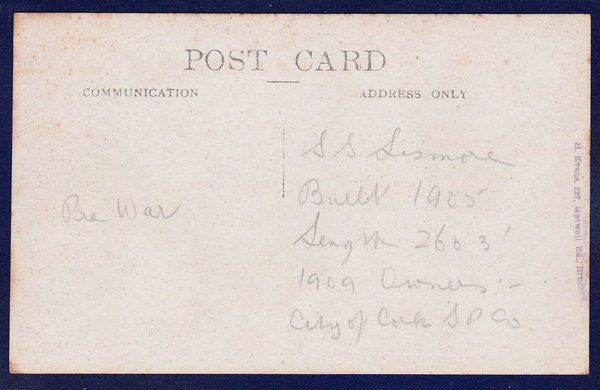 POST CARD
COMMUNICATION
ADDRESS ONLY
Pre War
S.S. Lismore
Built 1905
Length 260.3'
1909 Owners :-
City of Cork S P Co
H. Evans, 257, Hotwell Rd., Bristol